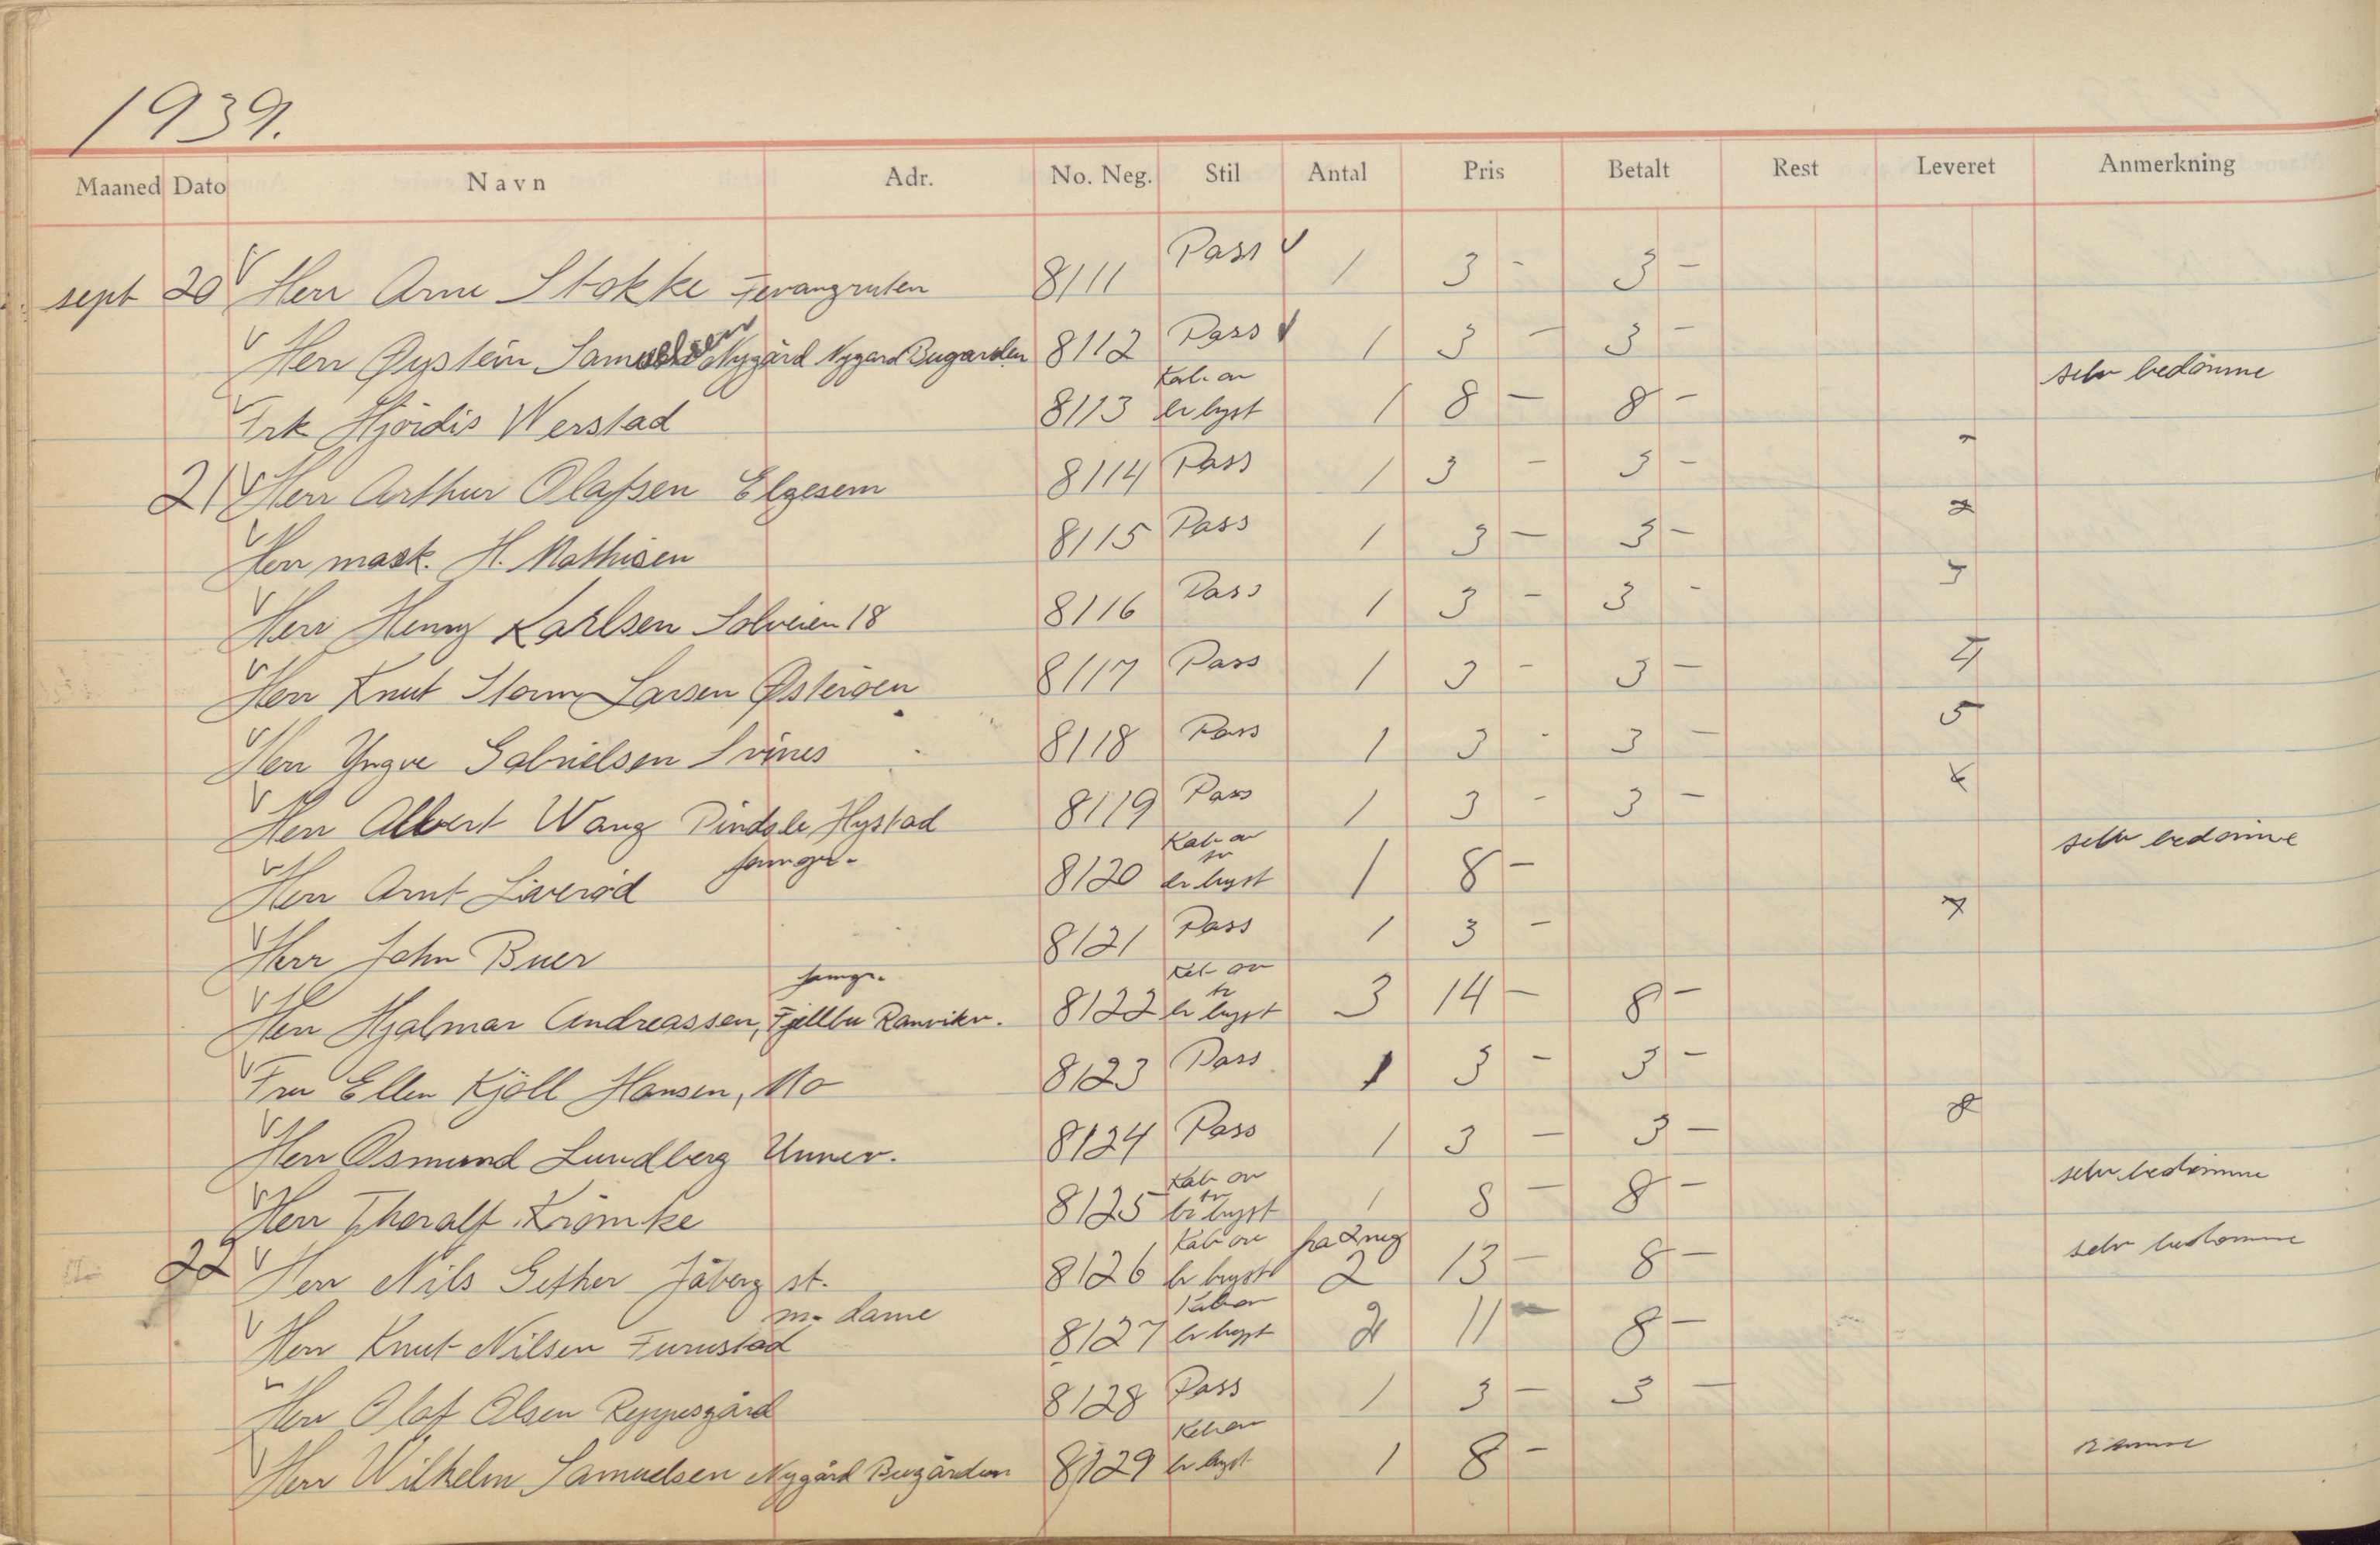 1939.
Maaned Dato Navn Adr. No. Neg. Stil Antal Pris Betalt Rest Leveret Anmerkning
sept 20 Herr Arne Stokke Fevangruten 8111 Pass 1 3 - 3 -
Herr Øystein Samuelsen Nygård Nygard Bugarden 8112 Pass 1 3 - 3 -
Frk Hjördis Werstad 8113 Kab. br byst 1 8 - 8 - selv bedömme
21 Herr Arthur Olafsen Elgesem 8114 Pass 1 3 - 3 -
Herr mask. H. Mathisen 8115 Pass 1 3 - 3 - 2
Herr Henry Karlsen Solveien 18 8116 Pass 1 3 - 3 - 3
Herr Knut Storm Larsen Østeröen 8117 Pass 1 3 - 3 - 4
Herr Yngve Gabrielsen Svines 8118 Pass 1 3 - 3 - 5
Herr Albert Wang Pindsle Hystad 8119 Pass 1 3 - 3 - 6
Herr Arnt Liveröd 8120 Kab br byst 1 8 - selv bedömme
Herr John Buer 8121 Pass 1 3 - 7
Herr Hjalmar Andreassen, Fjellbu Ranvikv. 8122 Kab br byst 3 14 - 8 -
Fru Ellen Kjöll Hansen, Mo 8123 Pass 1 3 - 3 -
Herr Osmund Lundberg Unnev. 8124 Pass 1 3 - 3 - 8
Herr Thoralf Krömke 8125 Kab br byst 1 8 - 8 - selv bedömme
22 Herr Nils Gether Jåberg st. 8126 Kab br byst fra 2 neg 2 13 - 8 - selv bedömme
m. dame
Herr Knut Nilsen Furustad 8127 br byst 2 11 - 8 -
Herr Olaf Olsen Reppesgård 8128 Pass 1 3 - 3 -
Herr Wilhelm Samuelsen Nygård Bugården 8129 br byst 1 8 - ramme